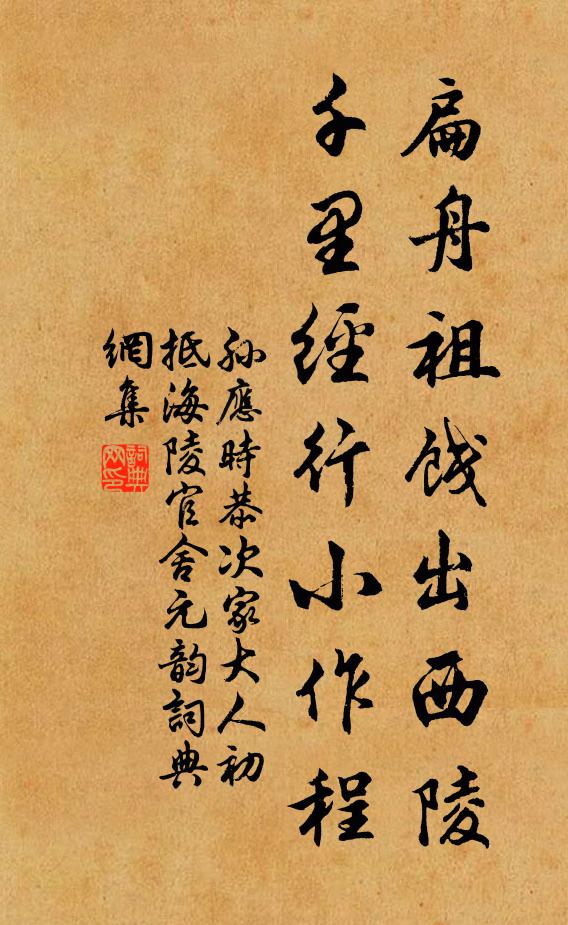 扁舟祖餞出西陵
千里經行小作程
孫應時恭次家大人初
抵海陵官舍元韵詞典
網集
詞典網印